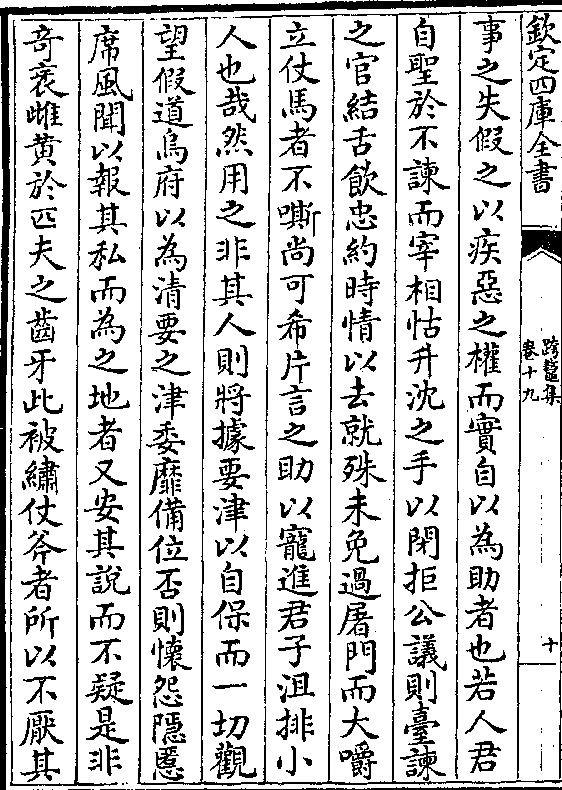 欽定四庫全書
跨鼇集
卷十九
十
事之失假之以疾惡之權而實自以為助者也若人君
自聖於不諫而宰相怙升沈之手以閉拒公議則臺諫
之官結舌飲忠約時情以去就殊未免過屠門而大嚼
立仗馬者不嘶尚可希片言之助以寵進君子沮排小
人也哉然用之非其人則將據要津以自保而一切觀
望假道烏府以為清要之津委靡備位否則懷怨隱慝
席風聞以報其私而為之地者又安其說而不疑是非
竒衺雌黄於匹夫之齒牙此被繡仗斧者所以不厭其